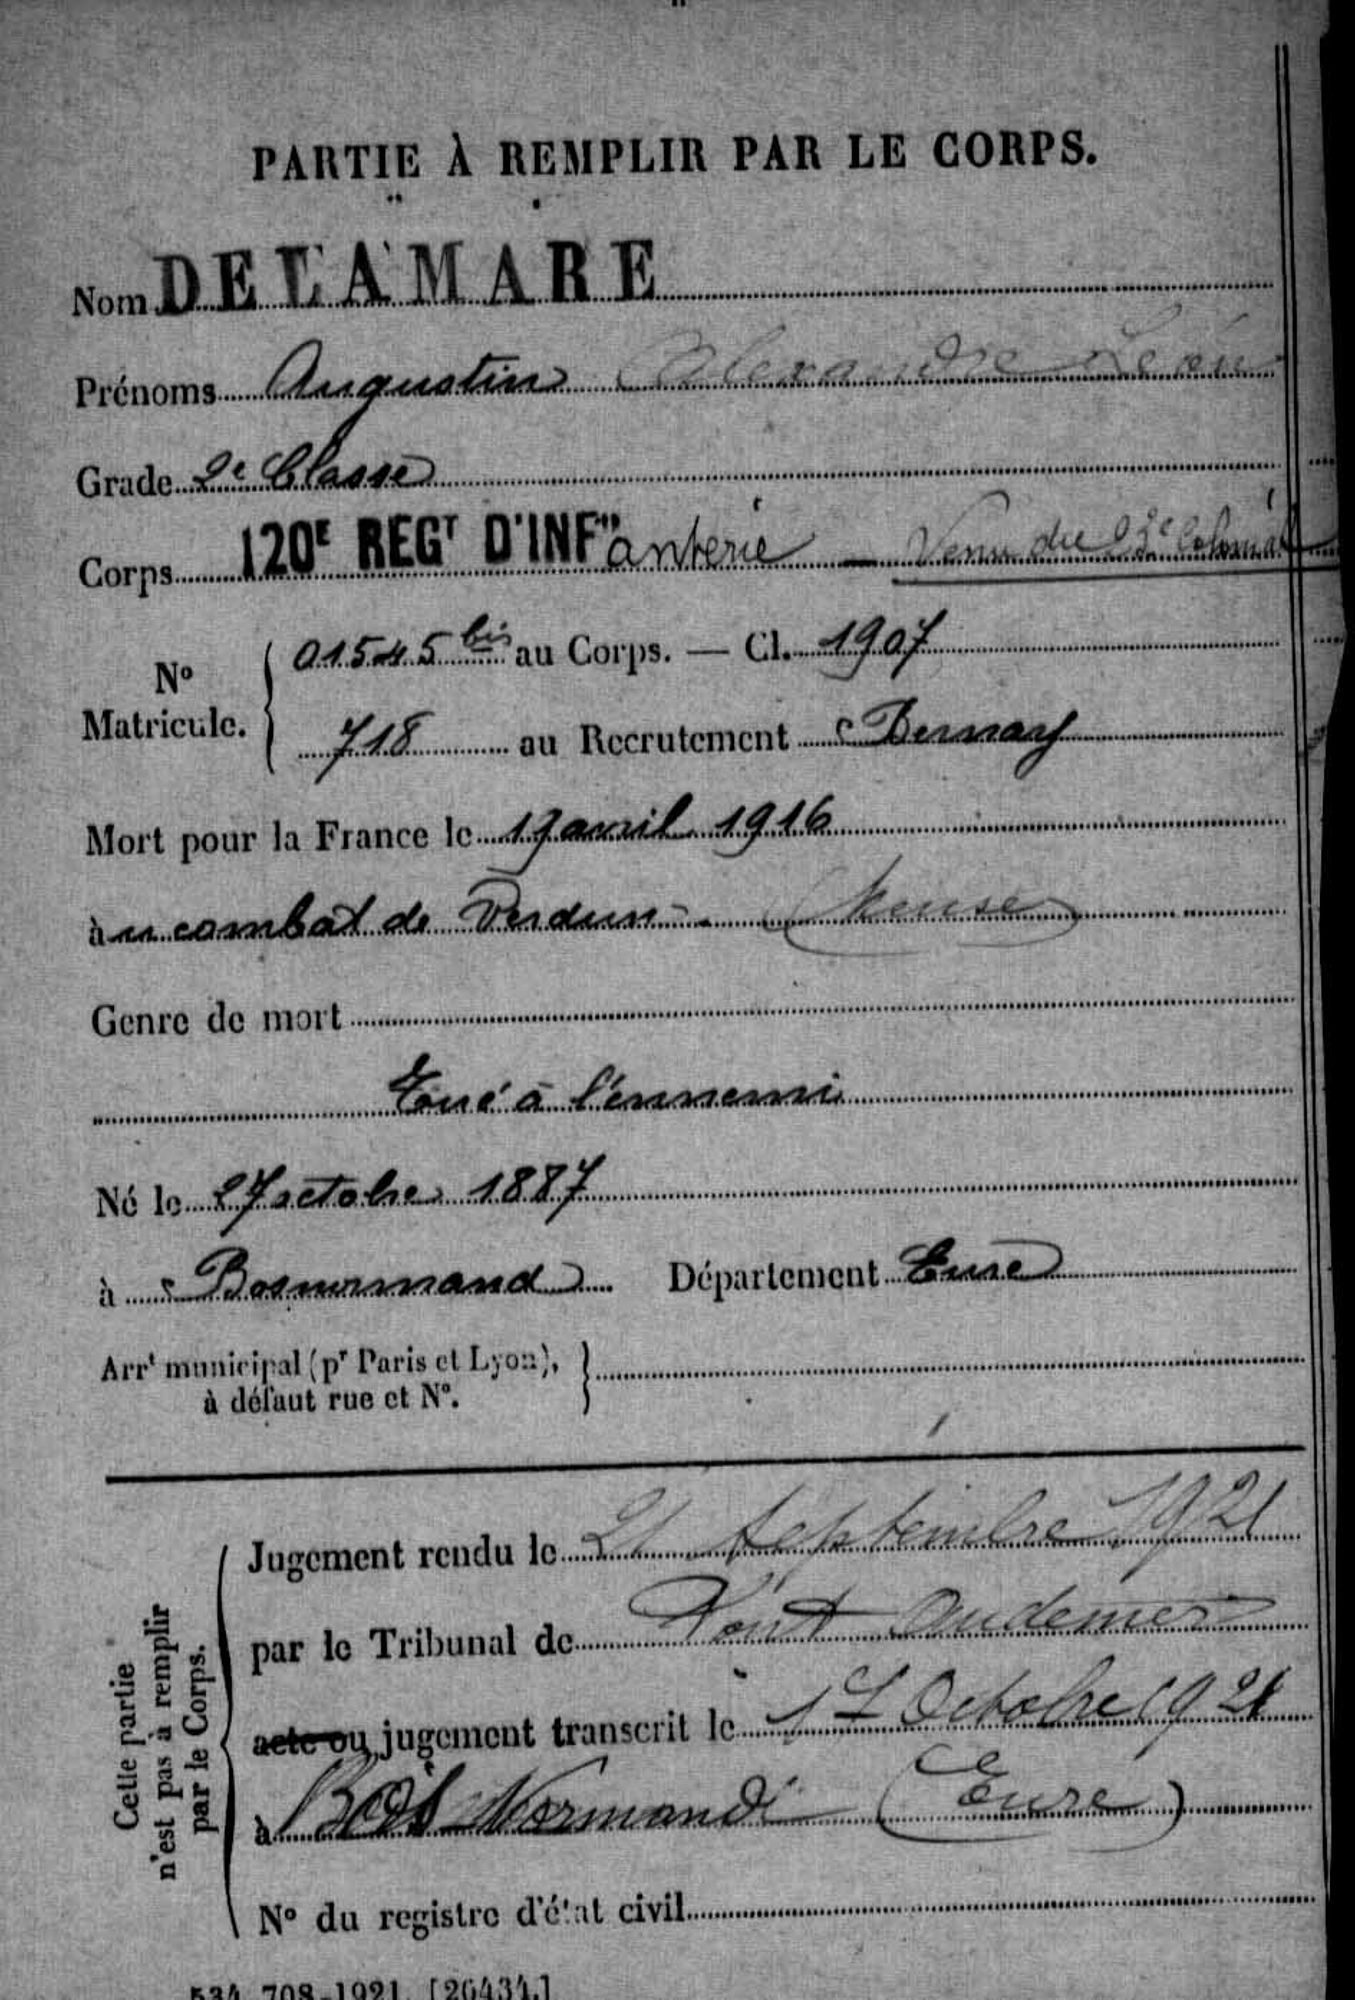 PARTIE À REMPLIR PAR LE CORPS.
Nom DELAMARE
Prénoms Augustin Alexandre Léon
Grade 2e Classe
Corps 120E REGT D'INFanterie — Venu du Colonial
No Matricule. 01545 bis au Corps. — Cl. 1907
718 au Recrutement Bernay
Mort pour la France le 17 avril 1916
au combat de Verdun - (Meuse)
Genre de mort
Tué à l'ennemi
Né le 27 octobre 1887
à Bosnormand Département Eure
Arrt municipal (pr Paris et Lyon),
à défaut rue et No.
Cette partie
n'est pas à remplir
par le Corps.
Jugement rendu le 21 Septembre 1921
par le Tribunal de Pont Audemer
acte ou jugement transcrit le 17 Octobre 1921
à Bos Normand (Eure)
No du registre d'état civil
534 708-1921 [26434.]